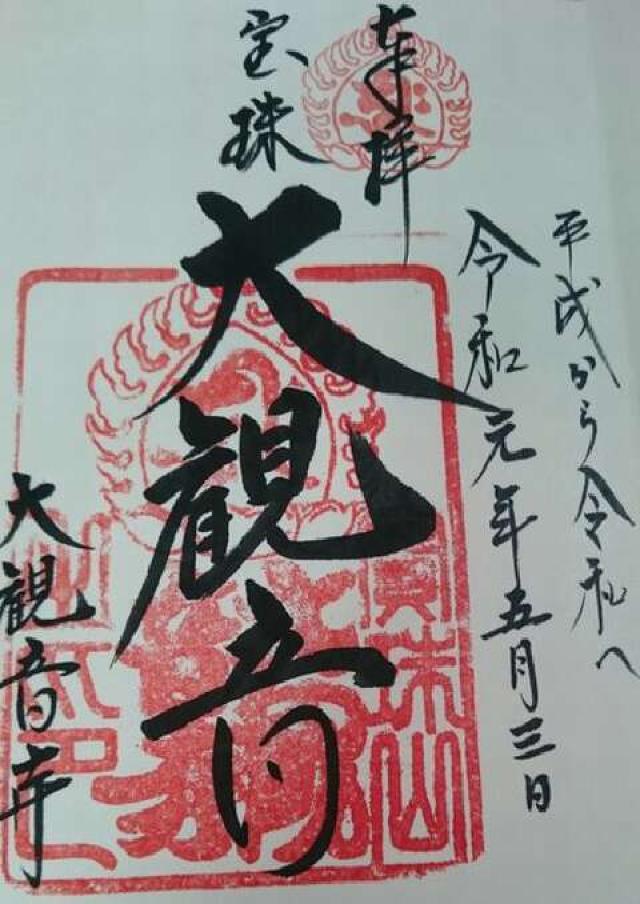 平成から令和へ
令和元年五月三日
奉拝
宝珠
大観音
大観音寺